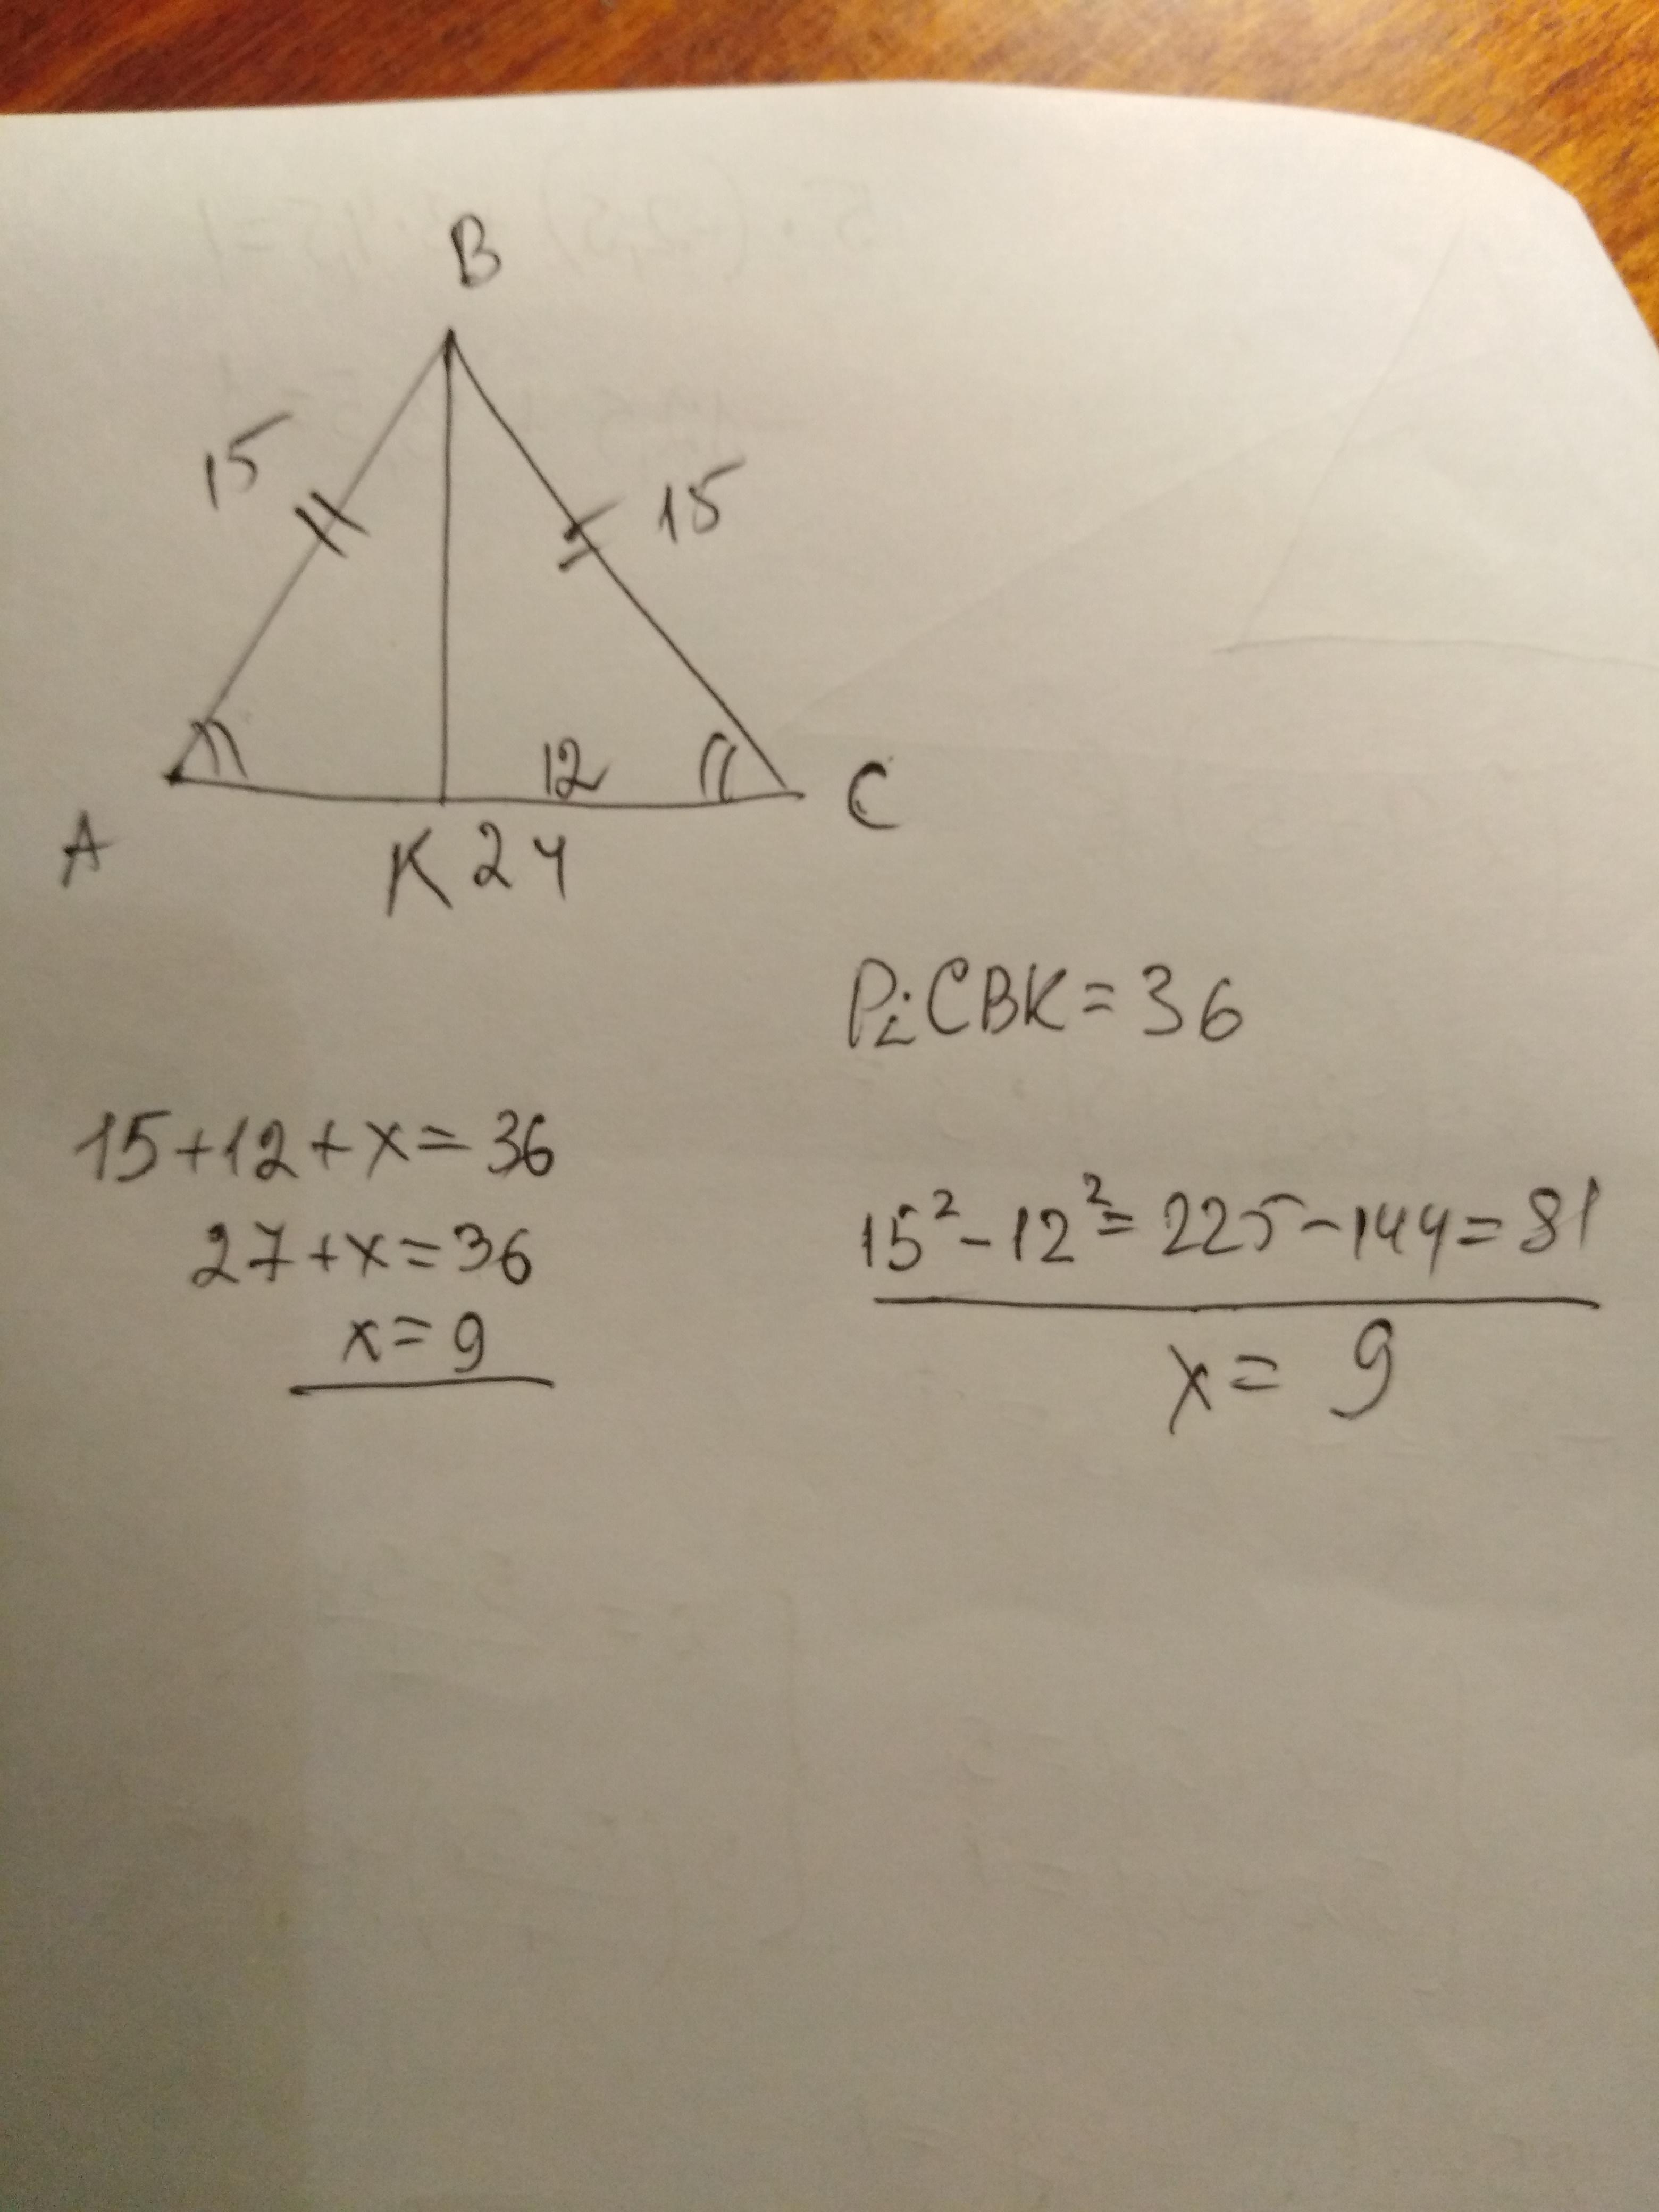 B
15
15
12
A
K 24
C
P: CBK = 36
15+12+x=36
27+x=36
x=9
15²-12²=225-144=81
x= 9